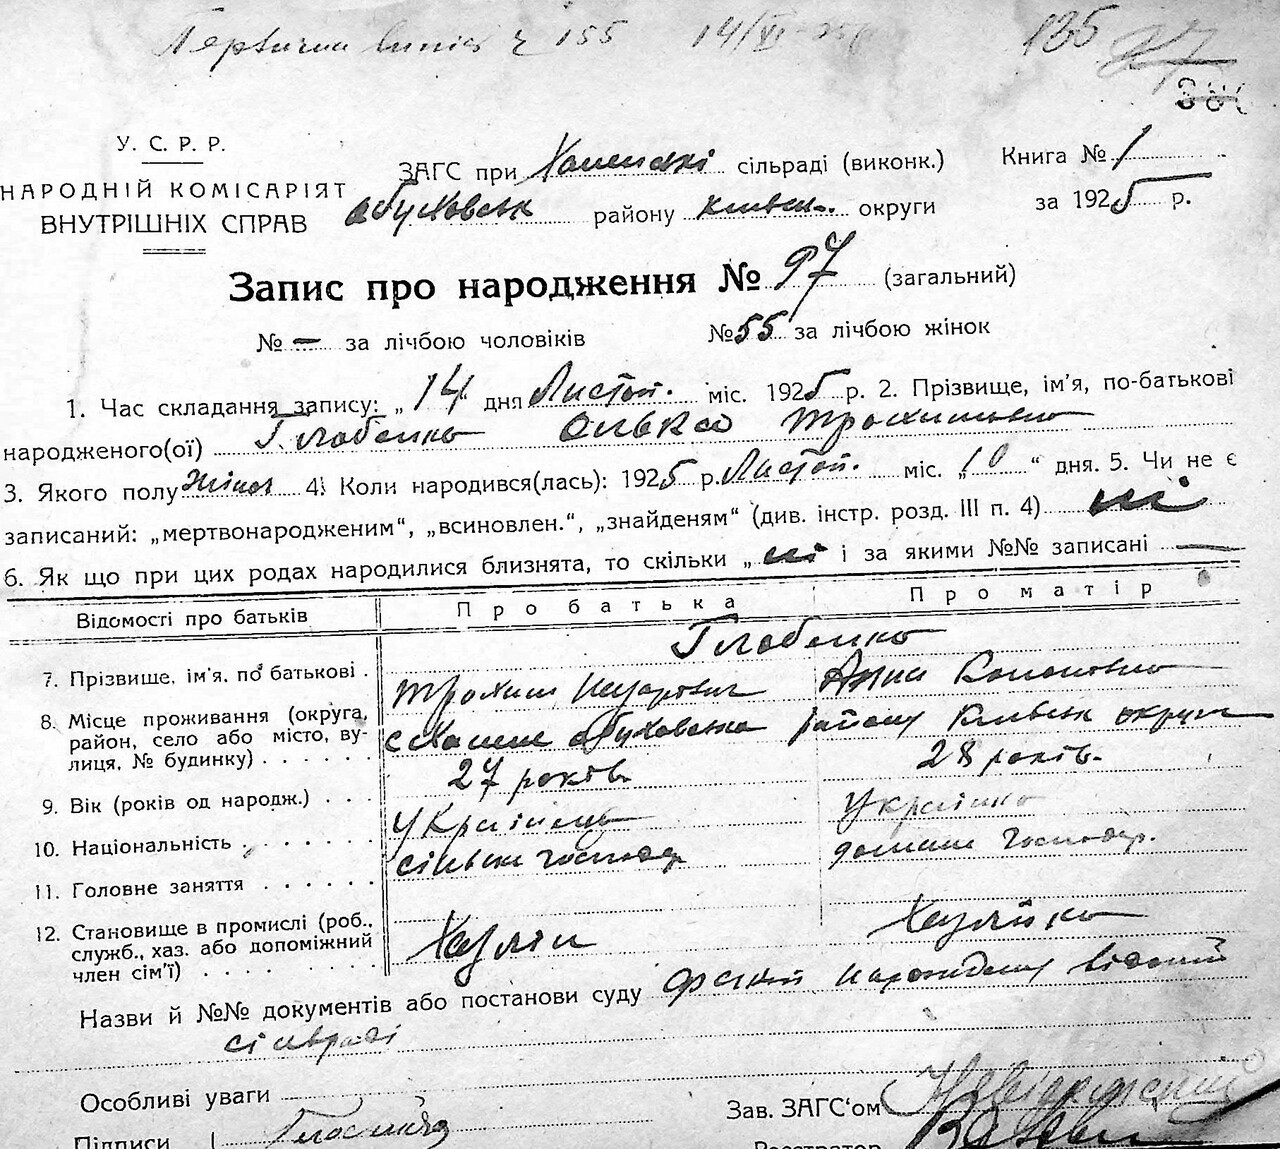 155 14/VI
135
У. С. Р. Р.
НАРОДНІЙ КОМІСАРІЯТ
ВНУТРІШНІХ СПРАВ
ЗАГС при сільраді (виконк.)
Обуховськ району Київськ. округи
Книга № 1
за 1925 р.
Запис про народження № 97 (загальний)
№ — за лічбою чоловіків № 55 за лічбою жінок
1. Час складання запису: „14 дня Листоп. міс. 1925 р. 2. Прізвище, ім'я, по-батькові
народженого(ої) Глобенко Трохимовна
3. Якого полу жіноч 4. Коли народився(лась): 1925 р. Листоп. міс. „10“ дня. 5. Чи не є
записаний: „мертвонародженим“, „всиновлен.“, „знайденям“ (див. інстр. розд. III п. 4) ні
6. Як що при цих родах народилися близнята, то скільки „ ні і за якими №№ записані —
Відомості про батьків Про батька Про матір
Глобенко
7. Прізвище, ім'я, по батькові Трохим Назарович Анна Кононовна
8. Місце проживання (округа, район, село або місто, вулиця, № будинку) Обуховська району Київськ округи
9. Вік (років од народж.) 27 років. 28 років.
10. Національність Українець Українка
11. Головне заняття сільськ господар домашн господар.
12. Становище в промислі (роб., служб., хаз. або допоміжний член сім'ї) Хазяїн Хазяйка
Назви й №№ документів або постанови суду факт народження відомий
сільраді
Особливі уваги
Зав. ЗАГС'ом
Підписи